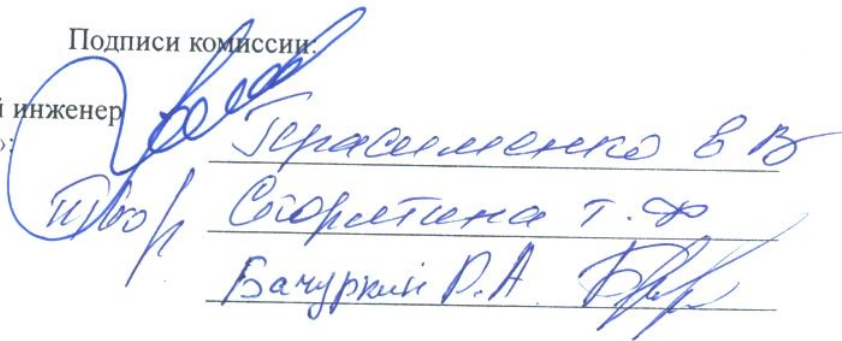 Подписи комиссии:
й инженер
»: Герасименко В В
Сторытина Т. Ф
Бачуркин Р. А.